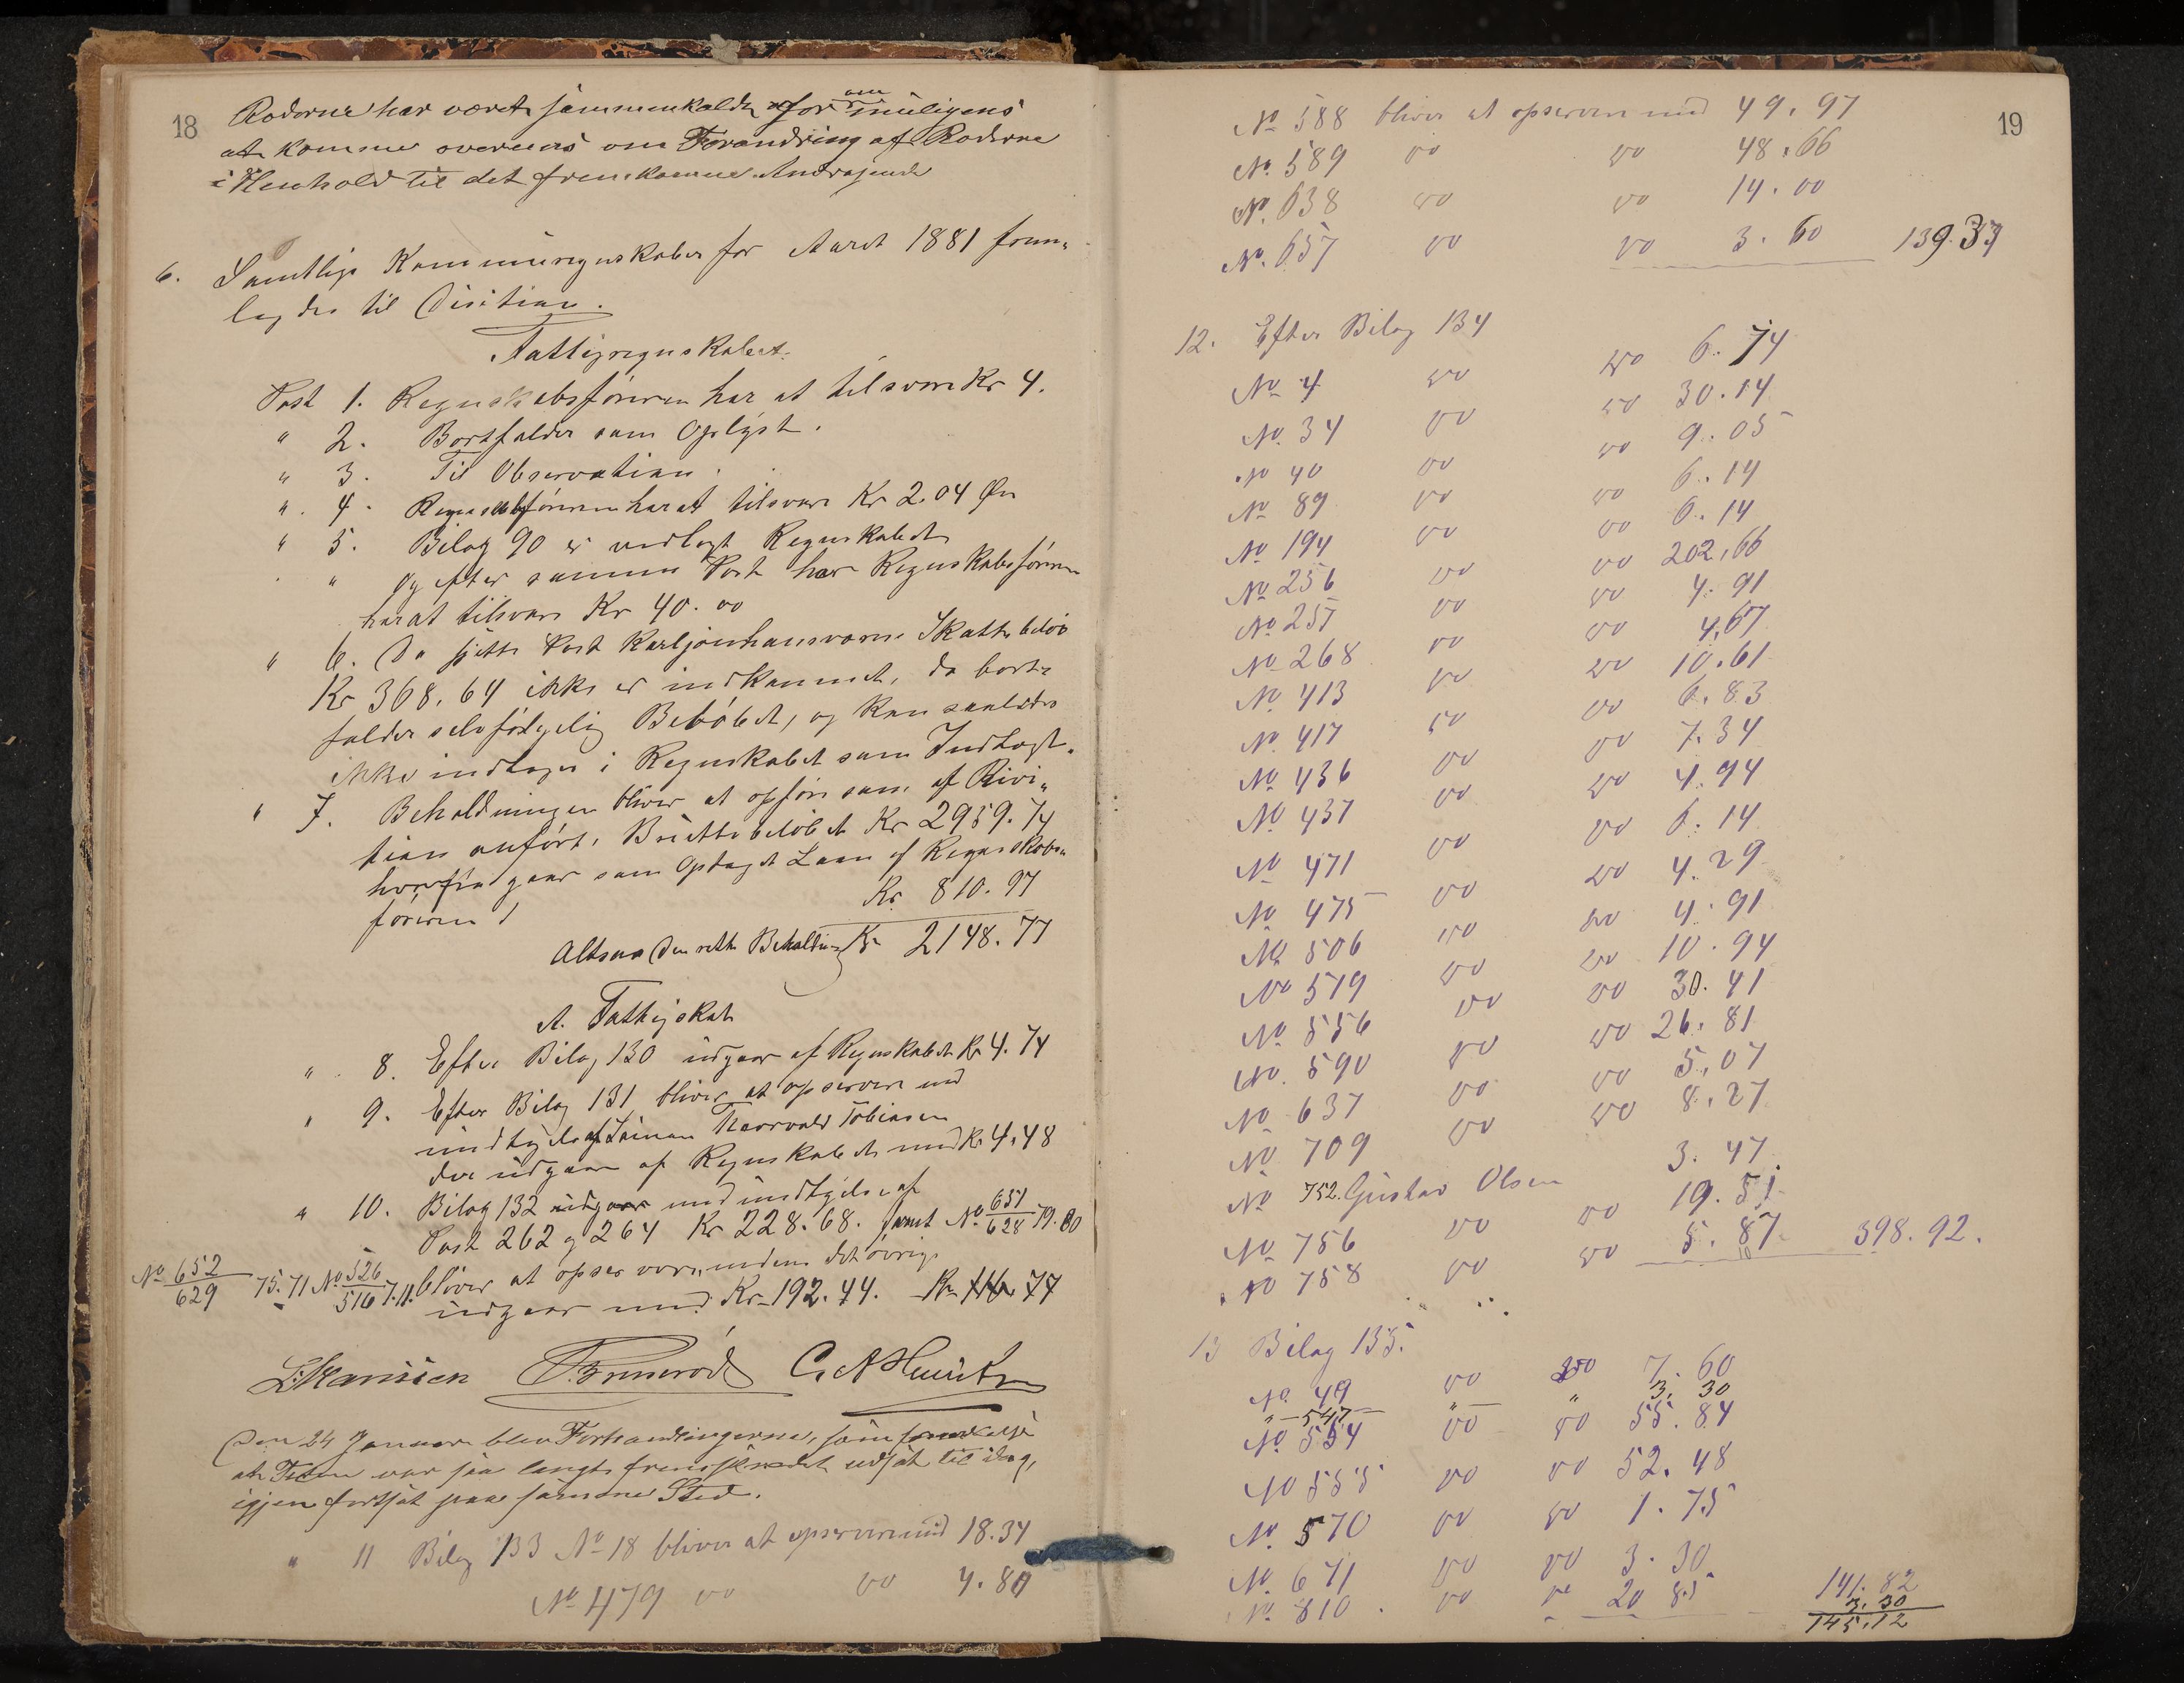 18
Roderne har været sammenkaldt for om muligens
at komme overens om Forandring af Roderne
i Henhold til det fremkomne Andragende
6. Samtlige Kommuneregnskaber for Aaret 1881 frem„
lagdes til Disition.
Fattigregnskabet.
Post 1. Regnskabsføreren har at tilsvare Kr 4.
" 2. Bortfalder som Oplyst.
" 3. Til Observation.
" 4. Regnskabsføreren har at tilsvare Kr 2.04 Øre
" 5. Bilag 90 er vedlagt Regnskabet
" og efter samme Post har Regnskabsføreren
har at tilsvare Kr 40.00
" 6. Da sjette Post Karljohansværns Skattebeløb
Kr 368.64 ikke er indkommet, da bort„
falder selvfølgelig Beløbet, og kan saaledes
ikke indtages i Regnskabet som Indtægt.
" 7. Beholdningen bliver at opføre som af Rivi„
tion anført, Bruttobeløbet Kr 2959.74
hvorfra gaar som Optaget Laan af Regnskabs„
føreren Kr. 810.97
Altsaa den rette Beholdn. Kr 2148.77
A. Fattigskat
" 8. Efter Bilag 130 udgaar af Regnskabet Kr 4.74
" 9. Efter Bilag 131 bliver at opservere med
undtagelse af Thorvald Tobiasen
der udgaar af Regnskabet med Kr 4.48
" 10. Bilag 132 udgaar med undtagelse af
Post 262 og 264 Kr 228.68. samt No 651/628 79.80
No 652/629 75.71 No 526/516 7.11. bliver at opservere, medens det øvrige
udgaar med Kr 192.44. Kr 116.77
L. Hansen
Den 24 Januar blev Forhandlingerne, som formedelst
at Tiden var saa langt fremskredet udsat til idag,
igjen fortsat paa samme Sted.
" 11 Bilag 133 No 18 bliver at opservere med 18.34
No 479 do do 4.80
19
No 588 bliver at opservere med 49.97
No. 589 do do 48.66
No. 638 do do 14.00
No. 657 do do 3.60 139.37
12. Efter Bilag 134
No 4 do do 6.74
No. 34 do do 30.14
No 40 do do 9.05
No 89 do do 6.14
No 194 do do 6.14
No 256 do do 202.66
No 257 do do 4.91
No 268 do do 4.67
No 413 do do 10.61
No 417 do do 6.83
No 436 do do 7.34
No 437 do do 4.94
No 471 do do 6.14
No 475 do do 4.29
No 506 do do 4.91
No 519 do do 10.94
No 556 do do 30.41
No. 590 do do 26.81
No 637 do do 5.07
No 709 do do 8.27
No 752. Gustav Olsen 3.47
No 756 do do 19.51
No 758 do do 5.87 398.92.
13 Bilag 135.
No. 49 do do 7.60
" 547 " " 3.30
No 554 do do 55.84
No 555 do do 52.48
No. 570 do do 1.75
No. 671 do do 3.30
No. 810. do do 20 85 141.82
3.30
145.12